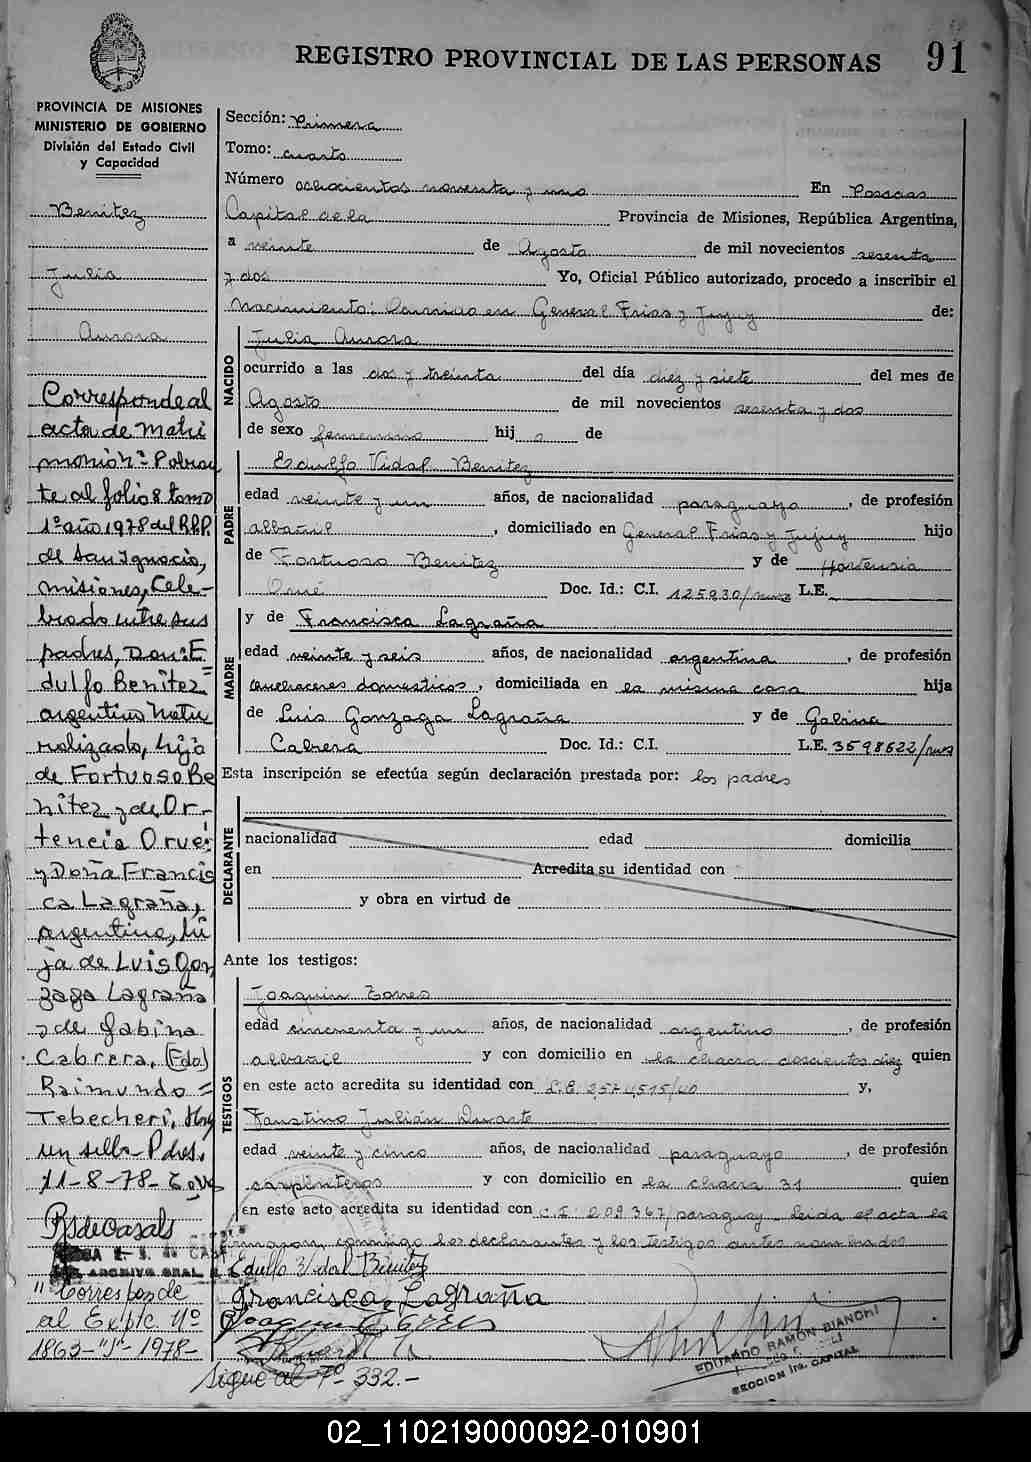 REGISTRO PROVINCIAL DE LAS PERSONAS 91
PROVINCIA DE MISIONES
MINISTERIO DE GOBIERNO
División del Estado Civil
y Capacidad
Benitez
Julia
Aurora
Corresponde al
acta de Matri
monio nº
te al folio 8 tomo
1º año 1978 del R.P.P.
de San Ignacio,
misiones, Cele-
brado entre sus
padres, Don: E
dulfo Benitez
argentino natu
ralizado, hijo
de Fortuoso Be
nitez y de Or-
tencia Orué;
y Doña Francis
ca Lagraña,
argentina, hi
ja de Luis Gon
zaga Lagraña
y de Gabina
Cabrera. (Fdo)
Raimundo =
Tebecheri. Hay
un sello - Pdas.
11-8-78-
"Corresponde
al Expte. Nº
1863-"J"-1978-
Sección: Primera
Tomo: cuarto
Número ochocientos noventa y uno En Posadas
Capital de la Provincia de Misiones, República Argentina,
a veinte de Agosto de mil novecientos sesenta
y dos Yo, Oficial Público autorizado, procedo a inscribir el
Nacimiento: Ocurrido en General Frias y Jujuy de:
NACIDO
Julia Aurora
ocurrido a las dos y treinta del día diez y siete del mes de
Agosto de mil novecientos sesenta y dos
de sexo femenino hij a de
PADRE
Edulfo Vidal Benitez
edad veinte y un años, de nacionalidad paraguayo, de profesión
albañil, domiciliado en General Frias y Jujuy hijo
de Fortuoso Benitez y de Hortensia
Orué Doc. Id.: C.I. 125930/ L.E.
MADRE
y de Francisca Lagraña
edad veinte y seis años, de nacionalidad argentina, de profesión
quehaceres domesticos, domiciliada en la misma casa hija
de Luis Gonzaga Lagraña y de Gabina
Cabrera Doc. Id.: C.I. L.E. 3598622/
Esta inscripción se efectúa según declaración prestada por: los padres
DECLARANTE
nacionalidad edad domicilia
en Acredita su identidad con
y obra en virtud de
Ante los testigos:
TESTIGOS
Joaquin Torres
edad cincuenta y un años, de nacionalidad argentino, de profesión
albañil y con domicilio en la chacra doscientos diez quien
en este acto acredita su identidad con L.E. 2574515/40 y,
Faustino Julián Duarte
edad veinte y cinco años, de nacionalidad paraguayo, de profesión
carpinteros y con domicilio en la chacra 31 quien
en este acto acredita su identidad con C.I: 209.367/paraguay. Leida el acta la
firmaron conmigo los declarantes y los testigos antes nombrados
Edulfo Vidal Benitez
Francisca Lagraña
Joaquin Torres
EDUARDO RAMON BIANCHI
SECCION 1ra. CAPITAL
Sigue al Fº 332.-
02_110219000092-010901